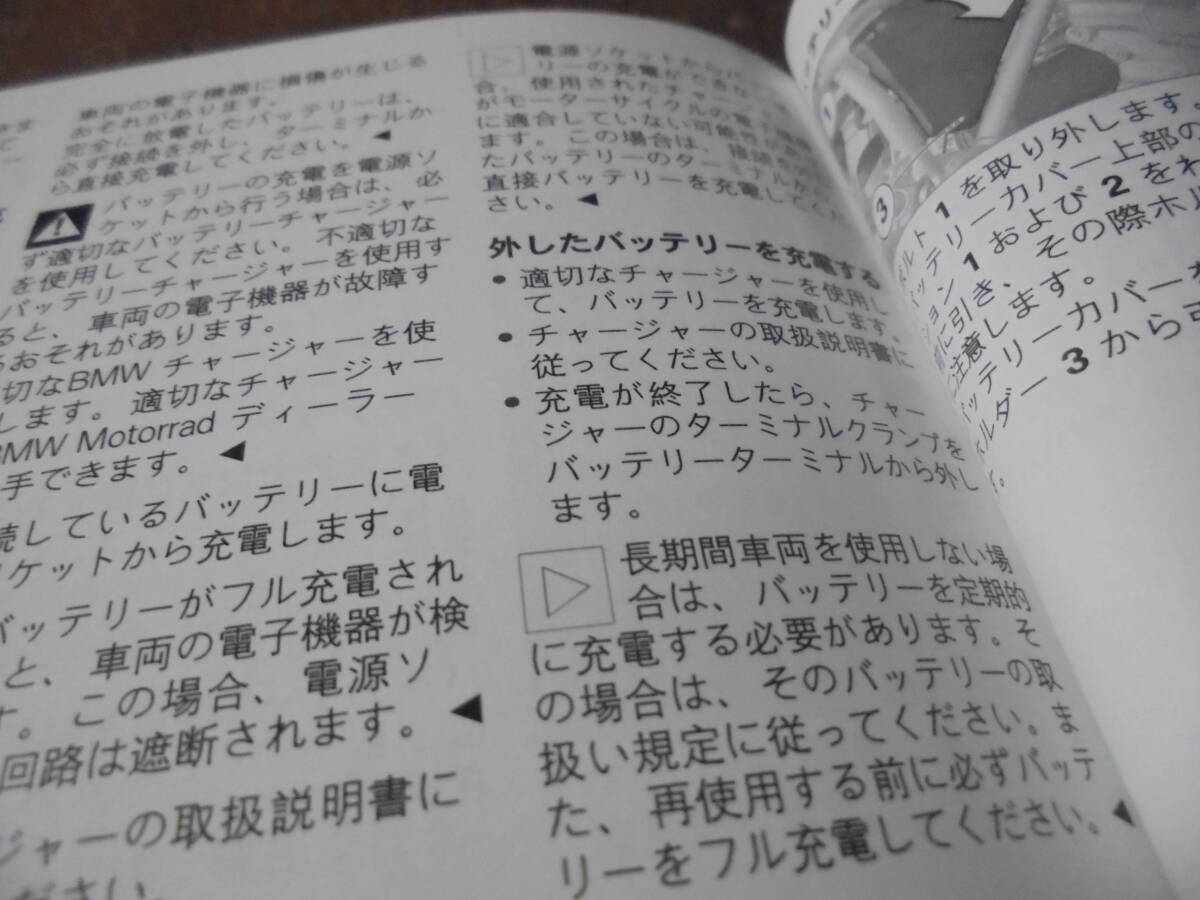 車両の電子機器に損傷が生じる
おそれがあります。
完全に放電したバッテリーは、
必ず接続を外し、ターミナルか
ら直接充電してください。◀
バッテリーの充電を電源ソ
ケットから行う場合は、必
ず適切なバッテリーチャージャー
を使用してください。不適切な
バッテリーチャージャーを使用す
ると、車両の電子機器が故障す
るおそれがあります。
切なBMW チャージャーを使
します。適切なチャージャー
BMW Motorrad ディーラー
手できます。◀
続しているバッテリーに電
ケットから充電します。
バッテリーがフル充電され
と、車両の電子機器が検
す。この場合、電源ソ
回路は遮断されます。◀
ジャーの取扱説明書に
ださい。
電源ソケットから
リーの充電ができない
合、使用されたチャー
がモーターサイクルの電子
に適合していない可能性が
ます。この場合は、接続を
たバッテリーのターミナルか
直接バッテリーを充電してくだ
さい。◀
外したバッテリーを充電する
• 適切なチャージャーを使用し
て、バッテリーを充電します。
• チャージャーの取扱説明書に
従ってください。
• 充電が終了したら、チャー
ジャーのターミナルクランプを
バッテリーターミナルから外し
ます。
長期間車両を使用しない場
合は、バッテリーを定期的
に充電する必要があります。そ
の場合は、そのバッテリーの取
扱い規定に従ってください。ま
た、再使用する前に必ずバッテ
リーをフル充電してください。◀
3
ボルト 1 を取り外します。
バッテリーカバー上部の
ション 1 および 2 をわ
前に引き、その際ホル
に注意します。
バッテリーカバーを
ホルダー 3 から